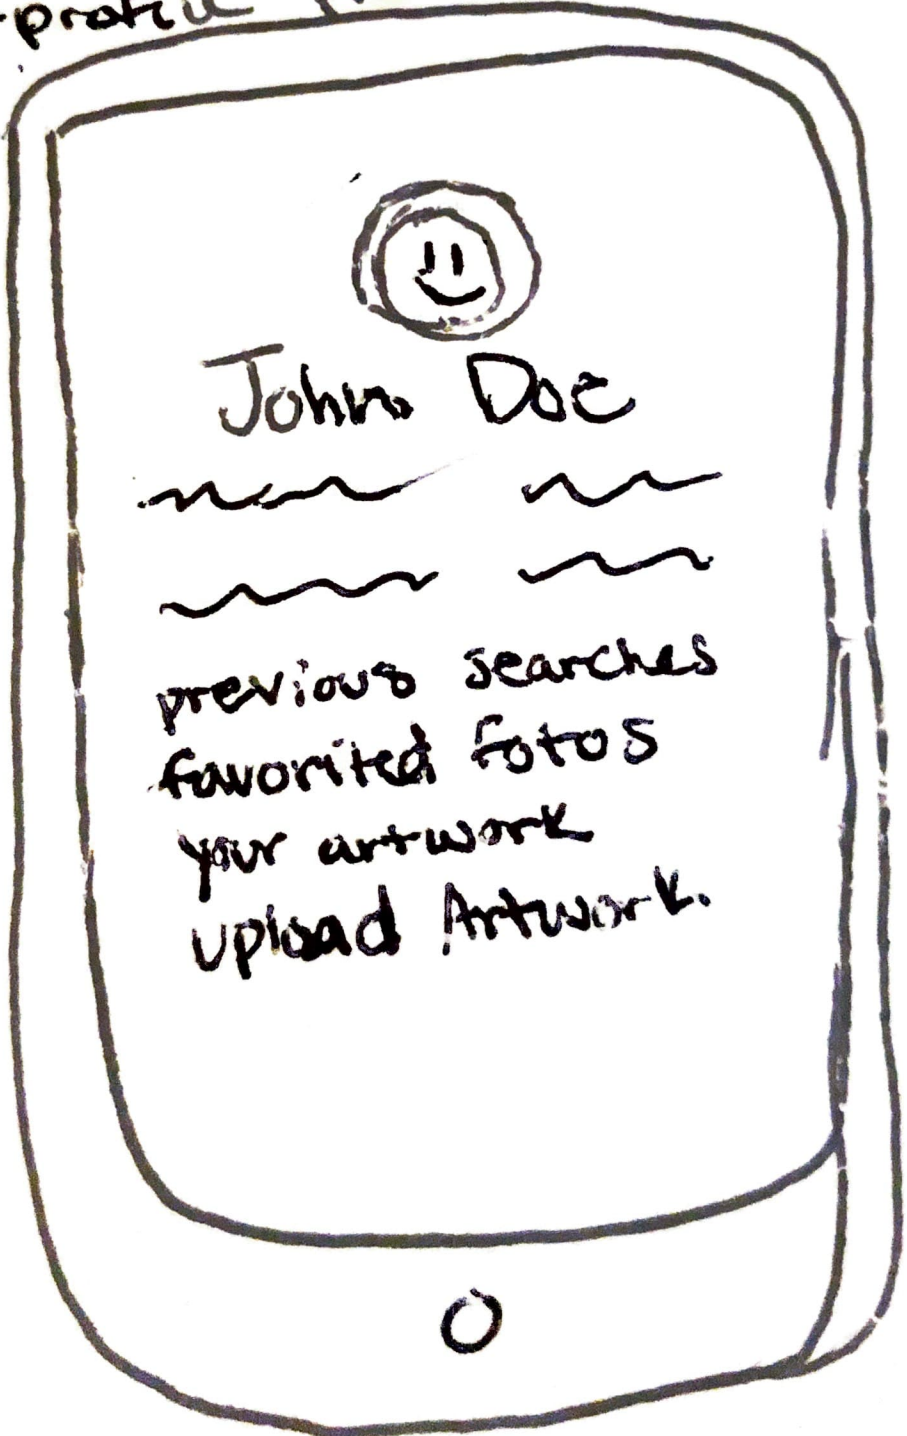 John Doe
previous searches
favorited fotos
your artwork
upload Artwork.